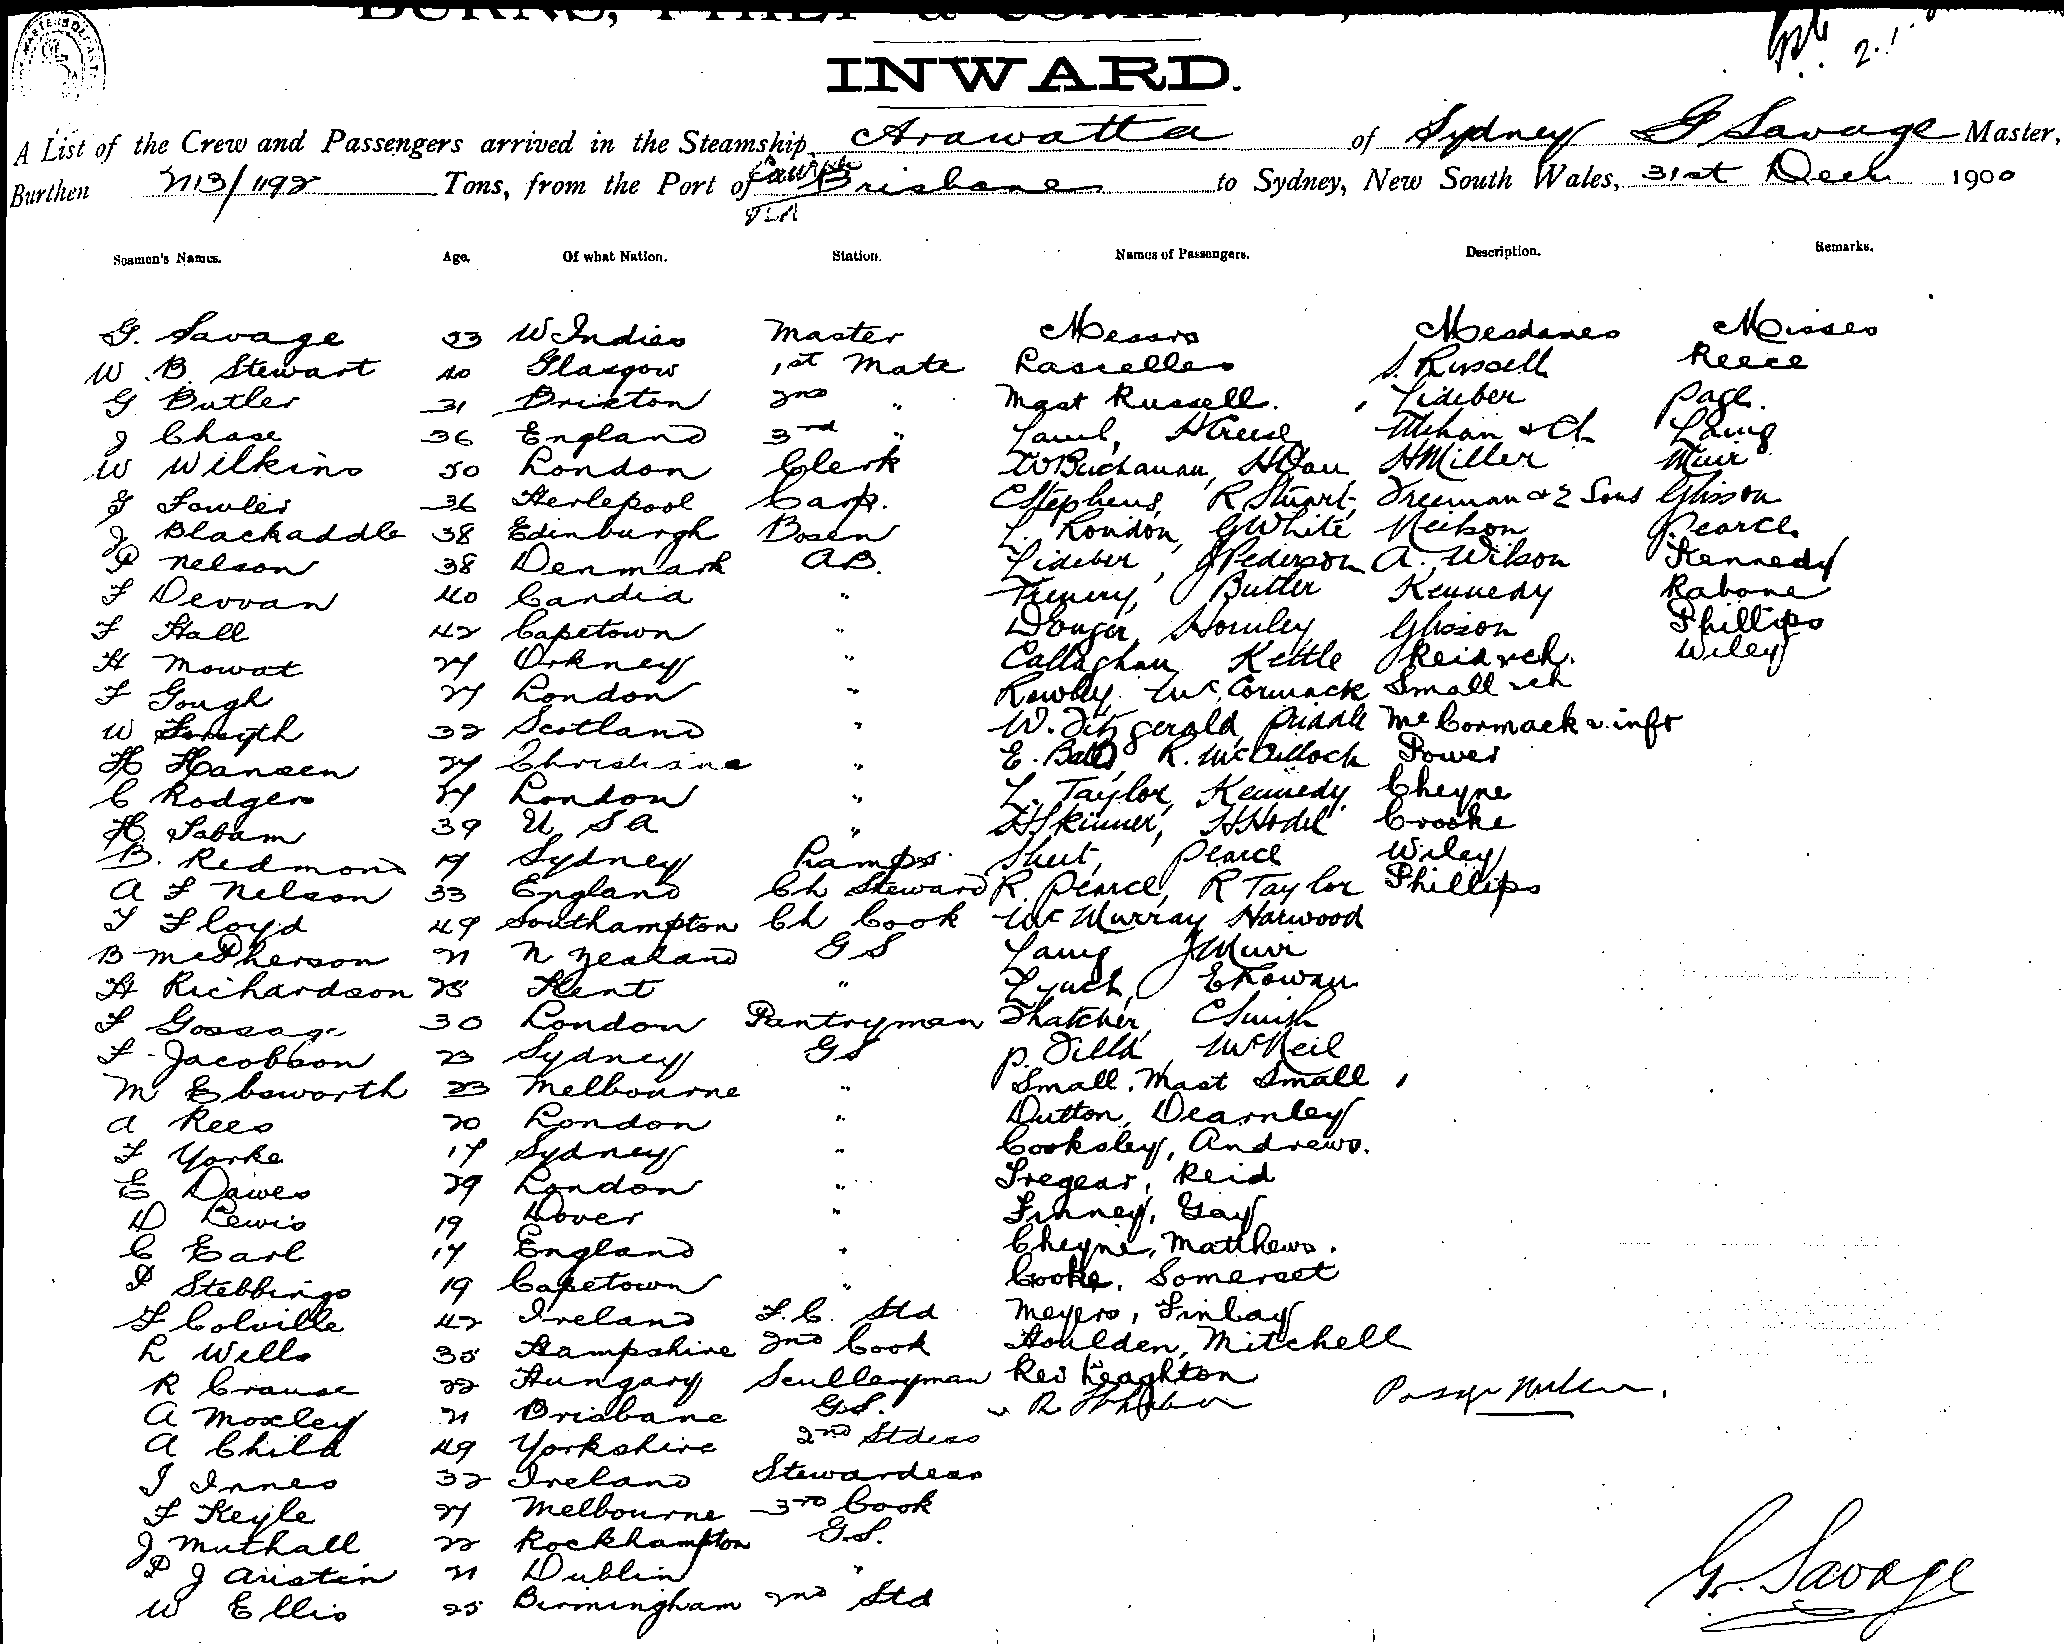 BURNS, PHILP & COMPANY,
INWARD.
A List of the Crew and Passengers arrived in the Steamship Arawatta of Sydney G Savage Master,
Burthen 2113/1192 Tons, from the Port of Brisbane to Sydney, New South Wales, 31st Dec 1900
Seamen's Names. Age. Of what Nation. Station. Names of Passengers. Description. Remarks.
G. Savage 53 W Indies Master Messrs Mesdames Misses
W. B. Stewart 40 Glasgow 1st Mate Lascelles S. Russell Reece
G Butler 31 Brixton 2nd " Mast Russell. Lideber Page.
J Chase 36 England 3rd " Lamb, Mehan & Ch. Laing
W Wilkins 50 London Clerk W Buchanan, H Dau H Miller Muir
J Fowler 36 Herlepool Carp. C Stephens, R Stuart, Freeman & 2 Sons Glisson
J Blackaddle 38 Edinburgh Bosen L. London, G White Neilson J. Pearce
P Nelson 38 Denmark A.B. Lideber, J Pederson A. Wilson Kennedy
F Devvan 40 Candia " Butler Kennedy Rabone
F Hall 42 Capetown " Hornley Glisson Phillips
H Mowat 27 Orkney " Callaghan Kettle Reid & ch. Wiley
F Gough 27 London " Rowley. McCormack Small & ch
W Forsyth 32 Scotland " W. Fitzgerald, Priddle McCormack & inft
H Hansen 27 Christiana " E. Ball, R. McCulloch Power
C Rodgers 27 London " L. Taylor, Kennedy Cheyne
H Sabam 39 U S A " H Skinner, H Hodel Crooke
B. Redmond 19 Sydney Lamps Shut, Pearce Wiley
A F Nelson 33 England Ch Steward R. Pearce, R Taylor Phillips
T Floyd 49 Southampton Ch Cook McMurray Harwood
B McPherson 21 N Zealand G S Laing J Muir
H Richardson 25 Kent " Lynch, E Rowan
F Gossage 30 London Pantryman Thatcher, C Smith
F. Jacobson 23 Sydney GS P. Dilla McNeil
M Ebsworth 23 Melbourne " Small. Mast Small
A Rees 20 London " Dutton, Dearnley
F Yorke 17 Sydney " Cooksley, Andrews.
E Dawes 29 London " Tregear, Reid
D Lewis 19 Dover " Finney, Gay
C Earl 17 England " Cheyne, Matthews.
P Stebbings 19 Capetown " Cooke, Somerset
F Colville 42 Ireland F. C. Std Meyers, Finlay
L Wells 35 Hampshire 2nd Cook Houlden, Mitchell
R Crause 22 Hungary Sculleryman Rev Leaghton
A Moxley 21 Brisbane G.S. " R
A Child 49 Yorkshire 2nd Stdess
I Innes 32 Ireland Stewardess
F Keyle 27 Melbourne 3rd Cook
J Muthall 22 Rockhampton G.S.
P J Austin 21 Dublin "
W Ellis 25 Birmingham 2nd Std
G. Savage